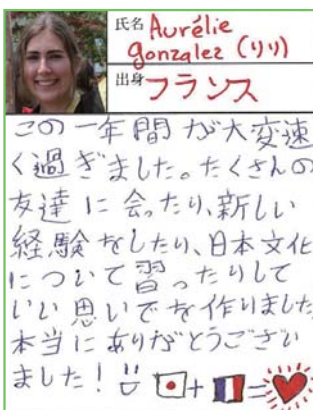 氏名 Aurélie
gonzalez (りり)
出身 フランス
この一年間が大変速
く過ぎました。たくさんの
友達に会ったり、新しい
経験をしたり、日本文化
について習ったりして
いい思いでを作りました
本当にありがとうござい
ました!